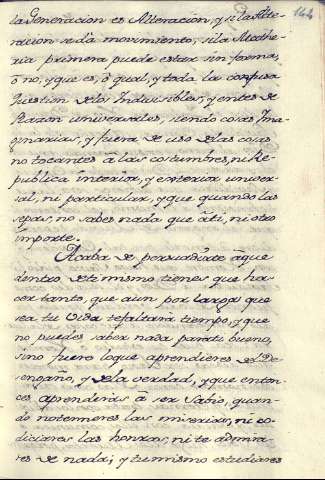 144
la Generacion es Alteracion, y si la Alte-
racion se da movimiento, si la Mathe-
ria primera puede estar sin forma,
o no, y que es, ò qual, y toda la confusa
Question de los Indivisibles, y entes de
Razon universales, siendo cosas Ima-
ginarias, y fuera de uso de las cosas
no tocantes à las costumbres, ni Re-
publica interior, y exterior univer-
sal, ni particular, y que quando las
sepas, no sabes nada que à ti, ni otro
importe.
Acaba de persuadirte à que
dentro de ti mismo tienes que ha-
ser tanto, que aun por larga que
sea tu Vida te faltarà tiempo, y que
no puedes saber nada para ti bueno,
sino fuere lo que aprendieres del De-
sengaño, y de la verdad, y que enton-
ces aprenderàs à ser Sabio, quan-
do no temieres las miserias, ni co-
diciares las honras, ni te admira-
res de nada; y tu mismo estudiares